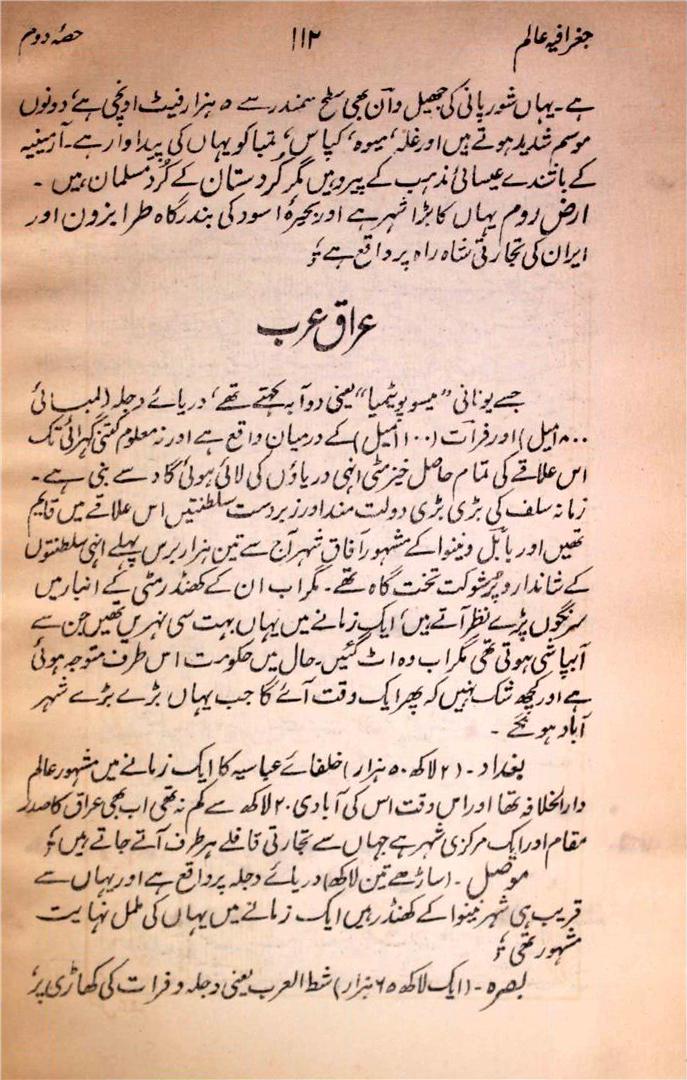 جغرافیہ عالم ۱۱۲ حصۂ دوم
ہے۔ یہاں شور پانی کی جھیل وآن بھی سطح سمندر سے ۵ ہزار فیٹ اونچی ہے، دونوں
موسم شدید ہوتے ہیں اور غلّہ، میوہ، کپاس، و تمباکو یہاں کی پیداوار ہے۔ آرمینیہ
کے باشندے عیسائی مذہب کے پیرو ہیں مگر کردستان کے کُرد مسلمان ہیں۔
ارض روم یہاں کا بڑا شہر ہے اور بحیرۂ اسود کی بندرگاہ طرابزون اور
ایران کی تجارتی شاہ راہ پر واقع ہے؛
عراق عرب
جسے یونانی "میسوپوٹیمیا" یعنی دوآبہ کہتے تھے، دریائے دجلہ (لمبائی
۸۰۰ میل) اور فرات (۱۰۰ا میل) کے درمیان واقع ہے اور نہ معلوم کتنی گہرائی تک
اس علاقے کی تمام حاصل خیز مٹی انہی دریاؤں کی لائی ہوئی گاد سے بنی ہے۔
زمانہ سلف کی بڑی بڑی دولت مند اور زبردست سلطنتیں اس علاقے میں قایم
تھیں اور بابل و نینوا کے مشہور آفاق شہر آج سے تین ہزار برس پہلے انہی سلطنتوں
کے شاندار و پُر شوکت تخت گاہ تھے۔ مگر اب ان کے کھنڈر مٹی کے انبار میں
سرنگوں پڑے نظر آتے ہیں، ایک زمانے میں یہاں بہت سی نہریں تھیں جن سے
آبپاشی ہوتی تھی مگر اب وہ اٹ گئیں۔ حال میں حکومت اس طرف متوجہ ہوئی
ہے اور کچھ شک نہیں کہ پھر ایک وقت آئے گا جب یہاں بڑے بڑے شہر
آباد ہونگے۔
بغداد۔ (۲ لاکھ ۵۰ ہزار) خلفائے عباسیہ کا ایک زمانے میں مشہور عالم
دارالخلافہ تھا اور اس وقت اس کی آبادی ۲۰ لاکھ سے کم نہ تھی اب بھی عراق کا صدر
مقام اور ایک مرکزی شہر ہے جہاں سے تجارتی قافلے ہر طرف آتے جاتے ہیں؛
موصل۔ (ساڑھے تین لاکھ) دریائے دجلہ پر واقع ہے اور یہاں سے
قریب ہی شہر نینوا کے کھنڈر ہیں ایک زمانے میں یہاں کی ململ نہایت
مشہور تھی؛
بصرہ۔ (ایک لاکھ ۶۵ ہزار) شط العرب یعنی دجلہ و فرات کی کھاڑی پر،